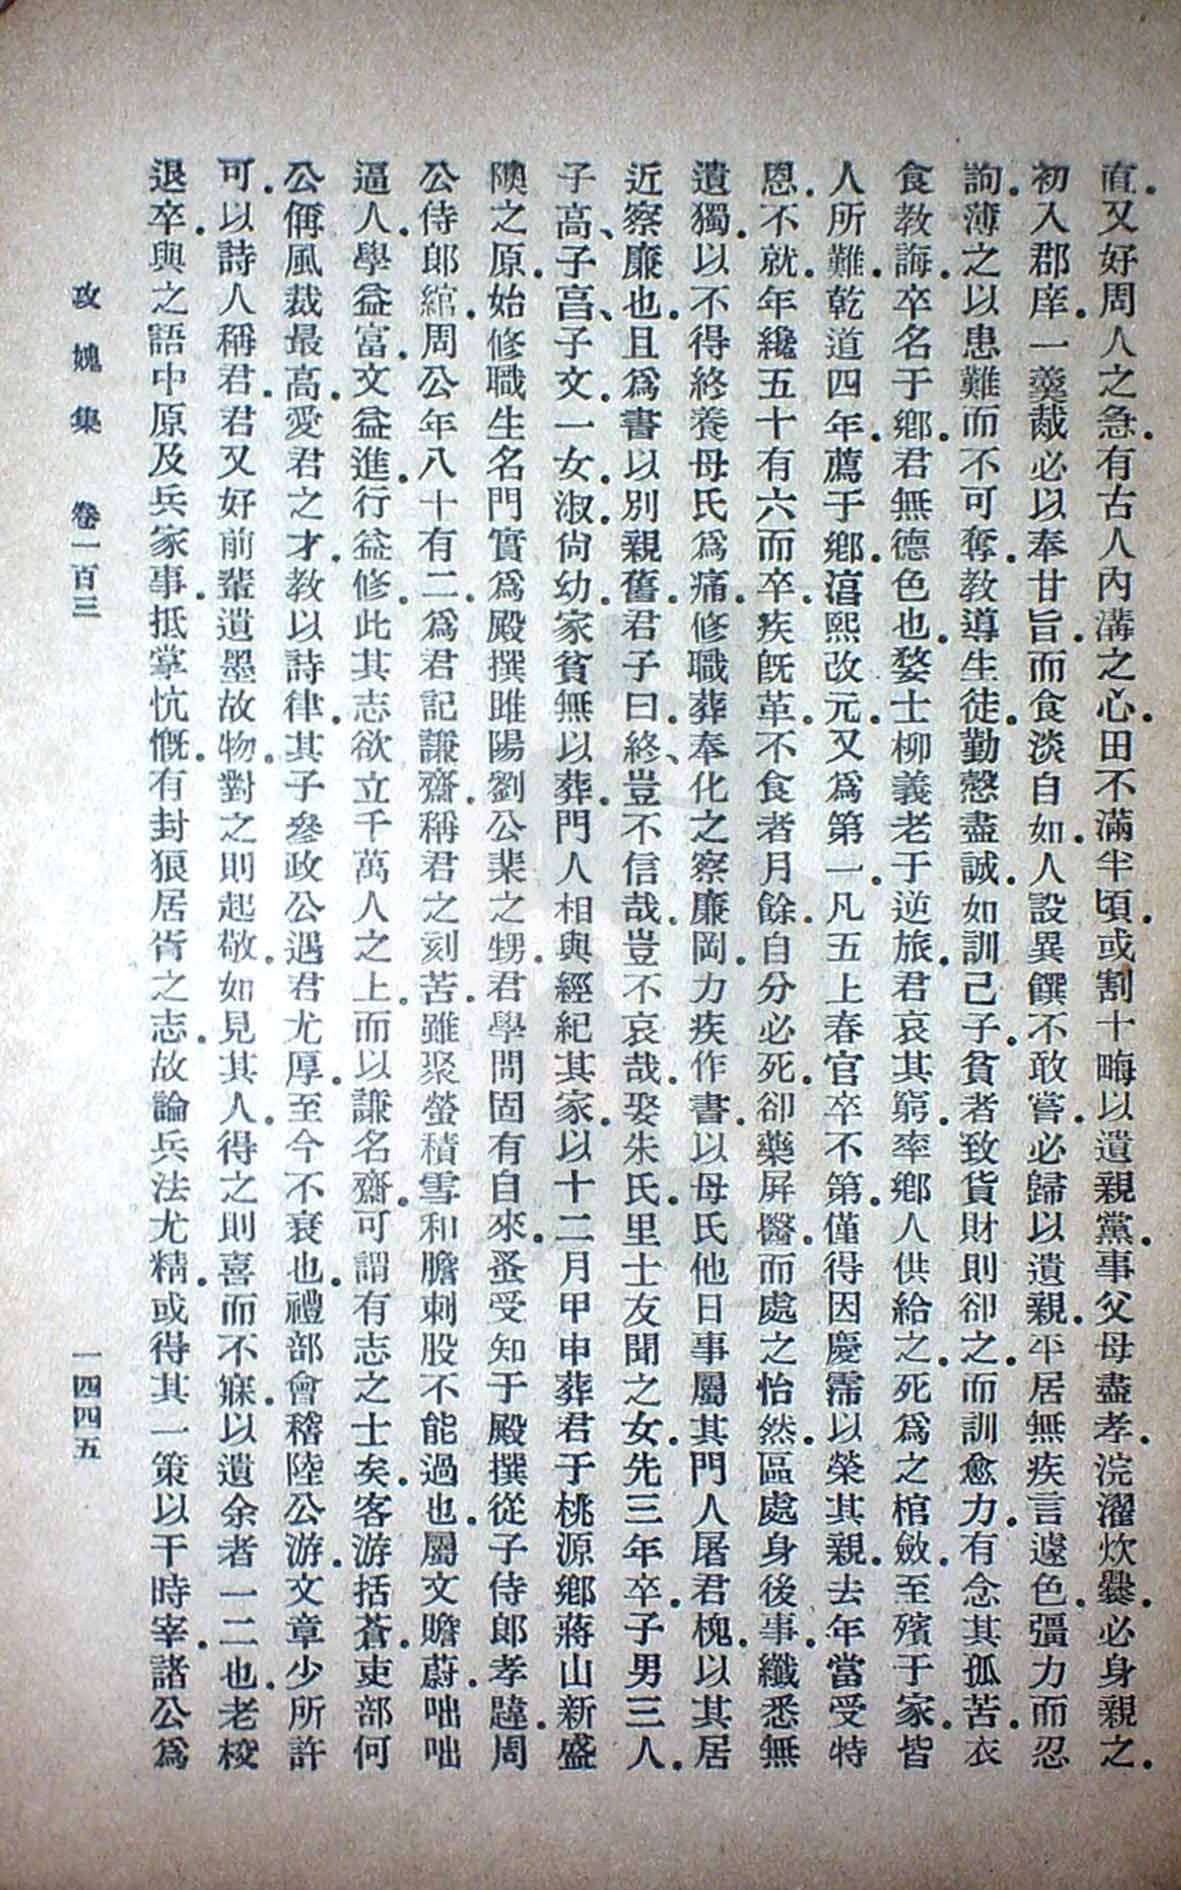 直。又好周人之急。有古人內溝之心。田不滿半頃。或割十畮以遺親黨。事父母盡孝。浣濯炊爨。必身親之。
初入郡庠。一羹胾必以奉甘旨。而食淡自如。人設異饌不敢嘗。必歸以遺親。平居無疾言遽色。彊力而忍
詢。薄之以患難而不可奪。教導生徒。勤愨盡誠。如訓己子。貧者致貨財則卻之。而訓愈力。有念其孤苦。衣
食教誨。卒名于鄉。君無德色也。婺士柳義老于逆旅。君哀其窮。率鄉人供給之。死爲之棺斂。至殯于家。皆
人所難。乾道四年。薦于鄉。淳熙改元。又爲第一。凡五上春官卒不第。僅得因慶霈以榮其親。去年當受特
恩。不就。年纔五十有六而卒。疾旣革。不食者月餘。自分必死。卻藥屏醫。而處之怡然。區處身後事。纖悉無
遺。獨以不得終養母氏爲痛。修職葬奉化之察廉岡。力疾作書。以母氏他日事屬其門人屠君槐。以其居
近察廉也。且爲書以別親舊。君子曰終、豈不信哉。豈不哀哉。娶朱氏。里士友聞之女。先三年卒。子男三人。
子高、子喜、子文。一女。淑。尙幼。家貧無以葬。門人相與經紀其家。以十二月甲申葬君于桃源鄉蔣山新盛
隩之原。始修職生名門。實爲殿撰睢陽劉公棐之甥。君學問固有自來。蚤受知于殿撰從子侍郎孝韙。周
公侍郎綰。周公年八十有二。爲君記謙齋。稱君之刻苦。雖聚螢積雪。和膽刺股不能過也。屬文贍蔚。咄咄
逼人。學益富。文益進。行益修。此其志欲立千萬人之上。而以謙名齋。可謂有志之士矣。客游括蒼。吏部何
公偁風裁最高。愛君之才。教以詩律。其子參政公遇君尤厚。至今不衰也。禮部會稽陸公游。文章少所許
可。以詩人稱君。君又好前輩遺墨故物。對之則起敬。如見其人。得之則喜而不寐。以遺余者一二也。老校
退卒。與之語中原及兵家事。抵掌忼慨。有封狼居胥之志。故論兵法尤精。或得其一策以干時宰。諸公爲
攻媿集 卷一百三 一四四五